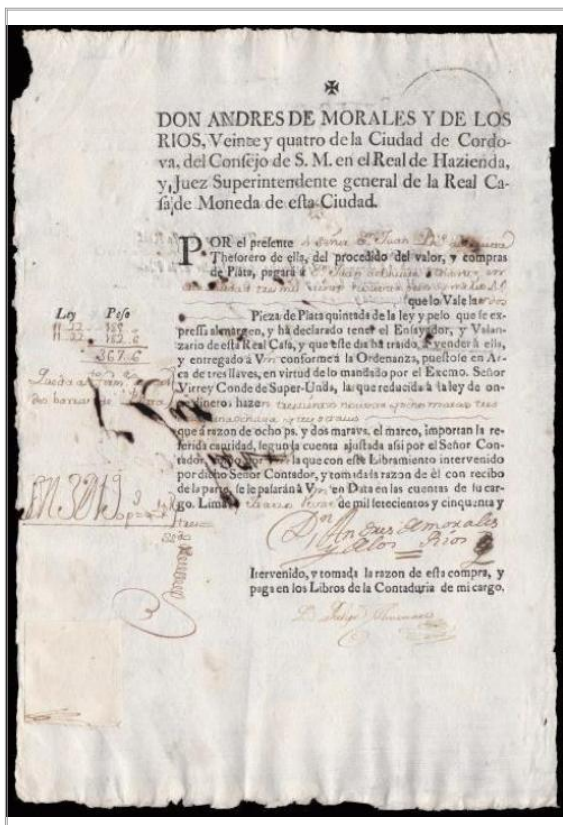 DON ANDRES DE MORALES Y DE LOS
RIOS, Veinte y quatro de la Ciudad de Cordo-
va, del Consejo de S. M. en el Real de Hazienda,
y, Juez Superintendente general de la Real Ca-
sa, de Moneda de esta Ciudad.
POR el presente el señor Dn Juan
Thesorero de ella, del procedido del valor, y compras
de Plata, pagará á Dn Juan
que lo Vale la
Ley Peso
11 22 185
11 22 182 6
367 6
Pieza de Plata quintada de la ley y peso que se ex-
pressa al margen, y há declarado tener el Ensayador, y Valan-
zario de esta Real Casa, y que este dia há traido, á vender á ella,
y entregado á Vm conforme à la Ordenanza, puestose en Ar-
ca de tres llaves, en virtud de lo mandado por el Excmo. Señor
Virrey Conde de Super-Unda, las que reducida à la ley de on-
ze dineros hazen trescientos noventa y ocho marcos tres
que á razon de ocho ps. y dos maravs. el marco, importan la re-
ferida cantidad, segun la cuenta ajustada assi por el Señor Con-
tador, la que con este Libramiento intervenido
por dicho Señor Contador, y tomada la razon de él con recibo
de la parte, se le pasarán á Vm en Data en las cuentas de su car-
go. Lima, de mil setecientos y cinquenta y
tres
Dn Andres de Morales
y de los Rios
Itervenido, y tomada la razon de esta compra, y
paga en los Libros de la Contaduria de mi cargo.